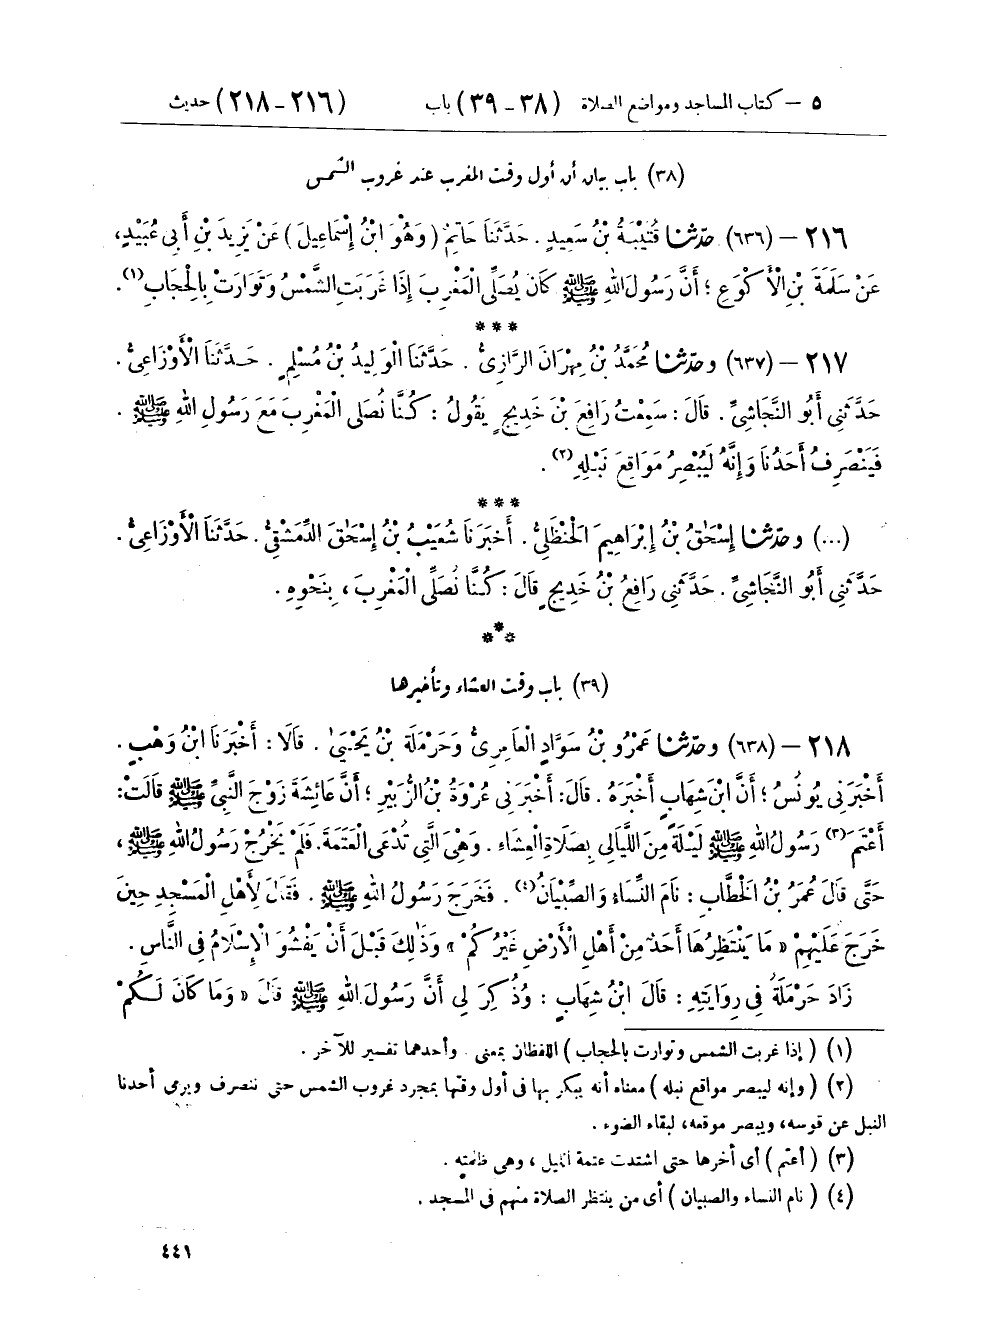 ٥ – كتاب المساجد ومواضع الصلاة (٣٨ - ٣٩) باب (٢١٦ - ٢١٨) حديث
(٣٨) باب بيان أن أول وقت المغرب عند غروب الشمس
٢١٦ – (٦٣٦) حدّثنا قُتَيْبَةُ بْنُ سَعِيدٍ . حَدَّثَنَا حَاتِمٌ (وَهُوَ ابْنُ إِسْمَاعِيلَ) عَنْ يَزِيدَ بْنِ أَبِي عُبَيْدٍ،
عَنْ سَلَمَةَ بْنِ الْأَكْوَعِ ؛ أَنَّ رَسُولَ اللهِ ﷺ كَانَ يُصَلِّي الْمَغْرِبَ إِذَا غَرَبَتِ الشَّمْسُ وَتَوَارَتْ بِالْحِجَابِ(١).
***
٢١٧ – (٦٣٧) وحدّثنا مُحَمَّدُ بْنُ مِهْرَانَ الرَّازِيُّ . حَدَّثَنَا الْوَلِيدُ بْنُ مُسْلِمٍ . حَدَّثَنَا الْأَوْزَاعِيُّ .
حَدَّثَنِي أَبُو النَّجَاشِيِّ . قَالَ : سَمِعْتُ رَافِعَ بْنَ خَدِيجٍ يَقُولُ : كُنَّا نُصَلِّي الْمَغْرِبَ مَعَ رَسُولِ اللهِ ﷺ .
فَيَنْصَرِفُ أَحَدُنَا وَإِنَّهُ لَيُبْصِرُ مَوَاقِعَ نَبْلِهِ(٢) .
***
(...) وحدّثنا إِسْحَاقُ بْنُ إِبْرَاهِيمَ الْحَنْظَلِيُّ . أَخْبَرَنَا شُعَيْبُ بْنُ إِسْحَاقَ الدِّمَشْقِيُّ . حَدَّثَنَا الْأَوْزَاعِيُّ .
حَدَّثَنِي أَبُو النَّجَاشِيِّ . حَدَّثَنِي رَافِعُ بْنُ خَدِيجٍ قَالَ : كُنَّا نُصَلِّي الْمَغْرِبَ ، بِنَحْوِهِ .
***
(٣٩) باب وقت العشاء وتأخيرها
٢١٨ – (٦٣٨) وحدّثنا عَمْرُو بْنُ سَوَّادٍ الْعَامِرِيُّ وَحَرْمَلَةُ بْنُ يَحْيَىٰ . قَالَا : أَخْبَرَنَا ابْنُ وَهْبٍ .
أَخْبَرَنِي يُونُسُ ؛ أَنَّ ابْنَ شِهَابٍ أَخْبَرَهُ . قَالَ: أَخْبَرَنِي عُرْوَةُ بْنُ الزُّبَيْرِ ؛ أَنَّ عَائِشَةَ زَوْجَ النَّبِيِّ ﷺ قَالَتْ:
أَعْتَمَ(٣) رَسُولُ اللهِ ﷺ لَيْلَةً مِنَ اللَّيَالِي بِصَلَاةِ الْعِشَاءِ . وَهِيَ الَّتِي تُدْعَى الْعَتَمَةَ. فَلَمْ يَخْرُجْ رَسُولُ اللهِ ﷺ ،
حَتَّى قَالَ عُمَرُ بْنُ الْخَطَّابِ : نَامَ النِّسَاءُ وَالصِّبْيَانُ(٤) . فَخَرَجَ رَسُولُ اللهِ ﷺ . فَقَالَ لِأَهْلِ الْمَسْجِدِ حِينَ
خَرَجَ عَلَيْهِمْ « مَا يَنْتَظِرُهَا أَحَدٌ مِنْ أَهْلِ الْأَرْضِ غَيْرُكُمْ » وَذٰلِكَ قَبْلَ أَنْ يَفْشُوَ الْإِسْلَامُ فِي النَّاسِ .
زَادَ حَرْمَلَةُ فِي رِوَايَتِهِ : قَالَ ابْنُ شِهَابٍ : وَذُكِرَ لِي أَنَّ رَسُولَ اللهِ ﷺ قَالَ « وَمَا كَانَ لَكُمْ
(١) ( إذا غربت الشمس وتوارت بالحجاب ) اللفظان بمعنى . وأحدهما تفسير للآخر .
(٢) ( وإنه ليبصر مواقع نبله ) معناه أنه يبكر بها فى أول وقتها بمجرد غروب الشمس حتى ننصرف ويرمى أحدنا
النبل عن قوسه، ويبصر موقعه، لبقاء الضوء .
(٣) ( أعتم ) أى أخرها حتى اشتدت عتمة الليل ، وهى ظلمته .
(٤) ( نام النساء والصبيان ) أى من ينتظر الصلاة منهم فى المسجد .
٤٤١